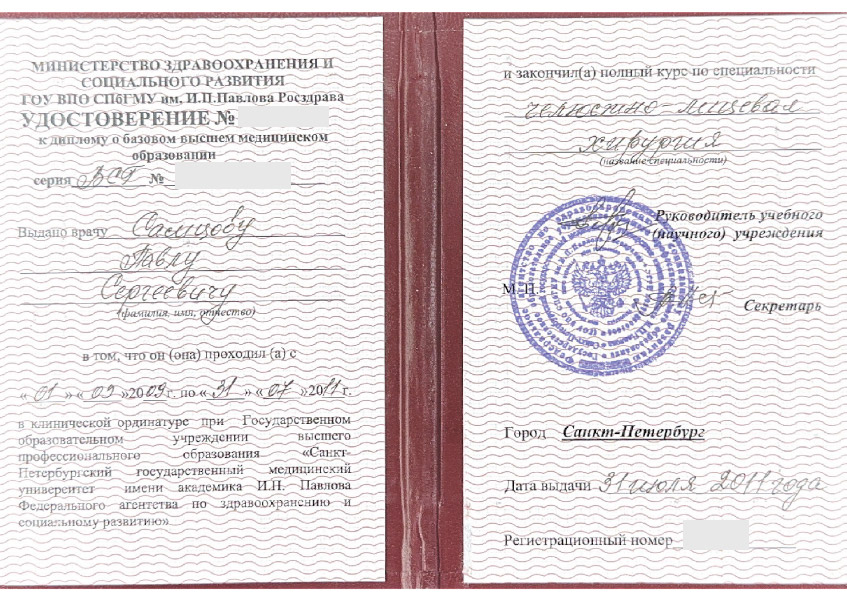 МИНИСТЕРСТВО ЗДРАВООХРАНЕНИЯ И
СОЦИАЛЬНОГО РАЗВИТИЯ
ГОУ ВПО СПбГМУ им. И.П.Павлова Росздрава
УДОСТОВЕРЕНИЕ №
к диплому о базовом высшем медицинском
образовании
серия ВСГ №
Выдано врачу
Павлу
Сергеевичу
(фамилия, имя, отчество)
в том, что он (она) проходил (а) с
« 01 » « 09 »2009г. по « 31 » « 07 »2011 г.
в клинической ординатуре при Государственном
образовательном учреждении высшего
профессионального образования «Санкт-
Петербургский государственный медицинский
университет имени академика И.П. Павлова
Федерального агентства по здравоохранению и
социальному развитию»
и закончил(а) полный курс по специальности
челюстно-лицевая
хирургия
(название специальности)
Руководитель учебного
(научного) учреждения
М.П.
Секретарь
Город Санкт-Петербург
Дата выдачи 31 июля 2011 года
Регистрационный номер